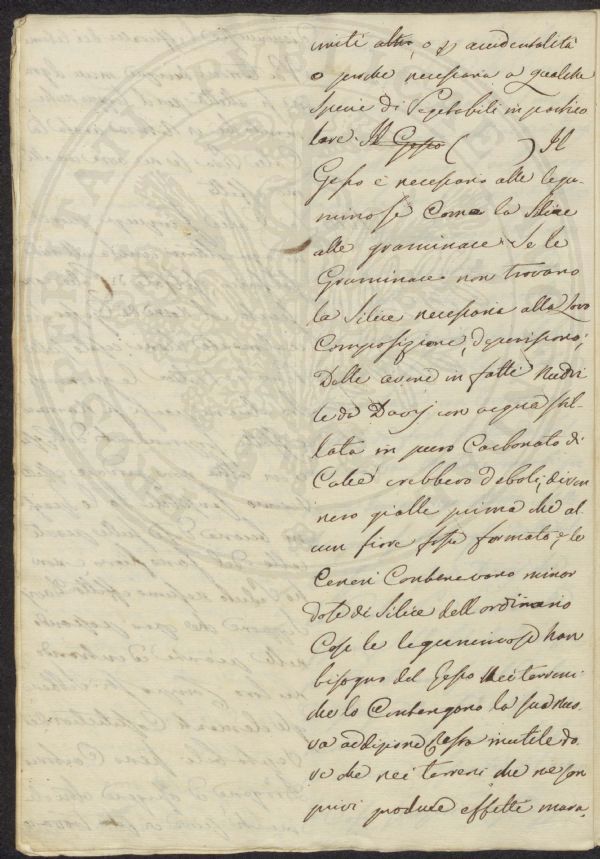 miti altri, o di accidentalità
o perché necessaria a qualche
specie di Vegetabili in partico
lare. Il Gesso ( ) Il
Gesso è necessario alle legu-
minose come la Silice
alle graminacee. Se le
Graminacee non trovano
la Silice necessaria alla loro
Composizione, deperiscono;
Delle avene in fatti nudri
te da Davy con acqua stil-
lata in puro Carbonato di
Calce crebbero deboli, diven
nero gialle prima che al
cun fiore fosse formato, e le
Ceneri Contenevano minor
dose di Silice dell ordinario
Così le leguminose han
bisogno del Gesso Nei terreni
che lo Contengono la sua nuo
va addizione è cosa inutile do
ve che nei terreni che ne son
privi produce effetti mara-